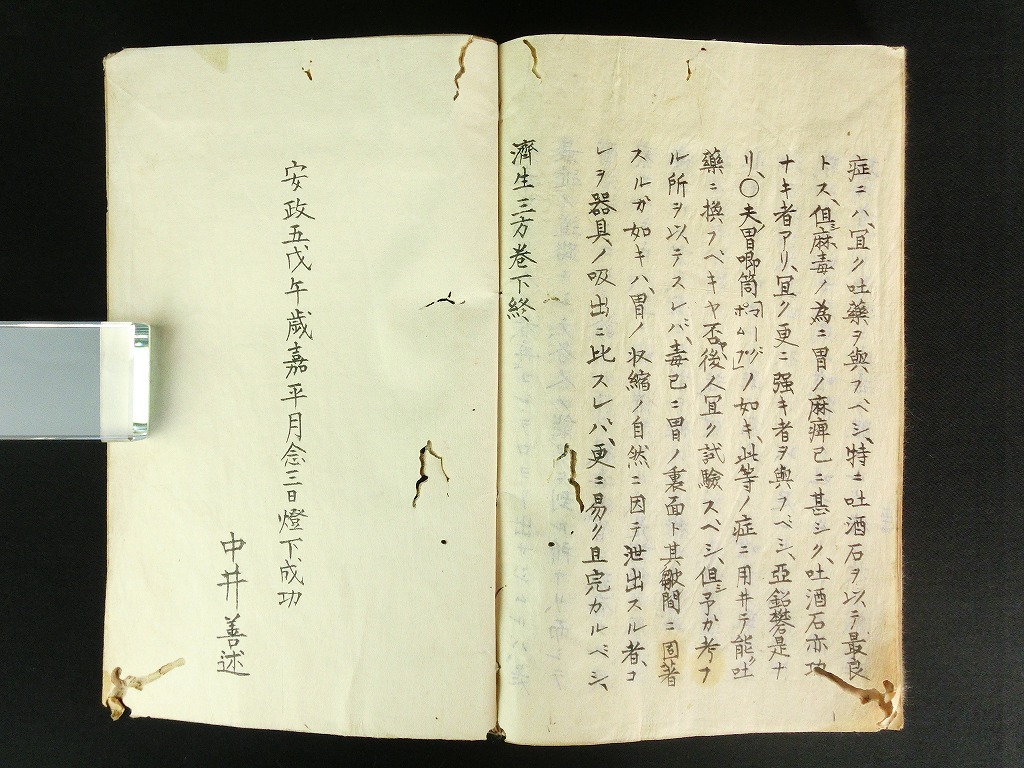 症ニハ、宜ク吐藥ヲ與フベシ、特ニ吐酒石ヲ以テ最良
トス、但シ麻毒ノ為ニ胃ノ麻痺已ニ甚シク、吐酒石亦功
ナキ者アリ、宜ク更ニ强キ者ヲ與フベシ、亞鉛礬是ナ
リ、○夫胃喞筒「マーグポムプ」ノ如キ、此等ノ症ニ用井テ能ク吐
藥ニ換フベキヤ否ヤ、後人宜ク試驗スベシ、但シ予カ考フ
ル所ヲ以テスレバ、毒已ニ胃ノ裏面ト其皺間ニ固著
スルガ如キハ、胃ノ収縮ノ自然ニ因テ泄出スル者、コ
レヲ器具ノ吸出ニ比スレバ、更ニ易ク且完カルベシ、
濟生三方巻下終
安政五戊午歳嘉平月念三日燈下成功
中井善述